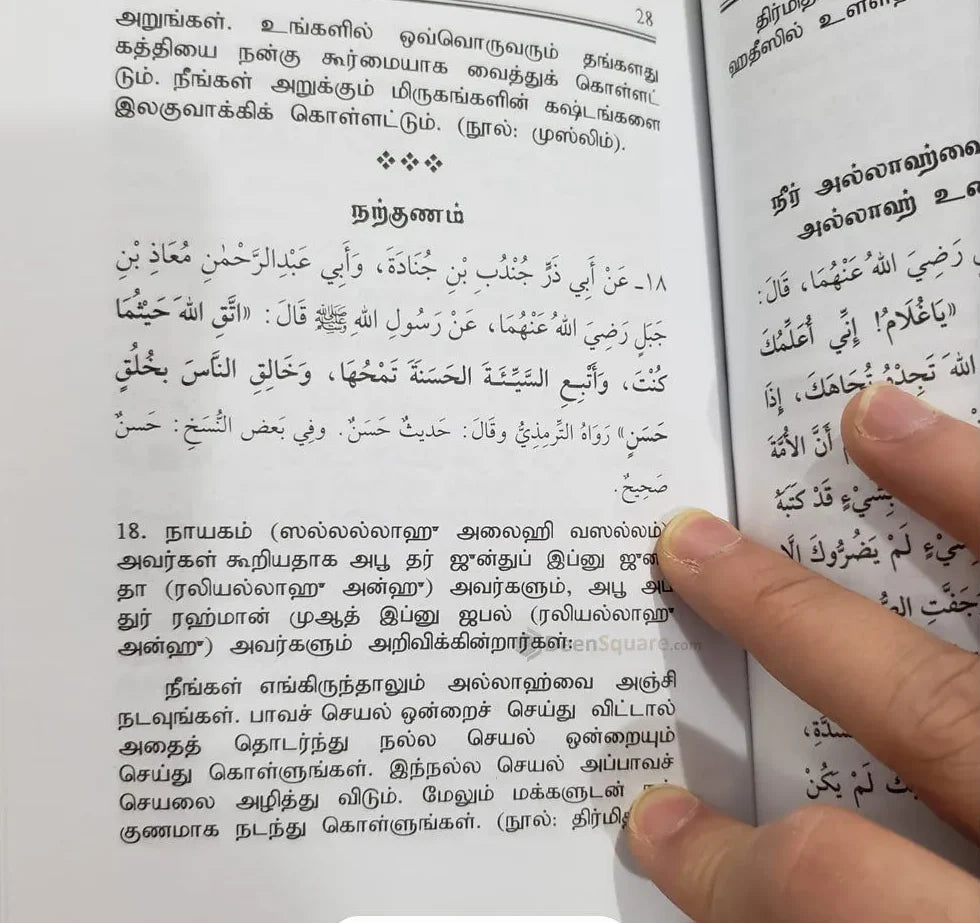 28
அறுங்கள். உங்களில் ஒவ்வொருவரும் தங்களது
கத்தியை நன்கு கூர்மையாக வைத்துக் கொள்ளட்
டும். நீங்கள் அறுக்கும் மிருகங்களின் கஷ்டங்களை
இலகுவாக்கிக் கொள்ளட்டும். (நூல்: முஸ்லிம்).
நற்குணம்
١٨ـ عَنْ أَبِي ذَرٍّ جُنْدُبِ بْنِ جُنَادَةَ، وَأَبِي عَبْدِالرَّحْمٰنِ مُعَاذِ بْنِ
جَبَلٍ رَضِيَ اللهُ عَنْهُمَا، عَنْ رَسُولِ اللهِ ﷺ قَالَ: «اتَّقِ اللهَ حَيْثُمَا
كُنْتَ، وَأَتْبِعِ السَّيِّئَةَ الحَسَنَةَ تَمْحُهَا، وَخَالِقِ النَّاسَ بِخُلُقٍ
حَسَنٍ» رَوَاهُ التِّرمِذِيُّ وقَالَ: حَدِيثٌ حَسَنٌ. وفِي بَعضِ النُّسَخِ: حَسَنٌ
صَحِيحٌ.
18. நாயகம் (ஸல்லல்லாஹு அலைஹி வஸல்லம்)
அவர்கள் கூறியதாக அபூ தர் ஜுன்துப் இப்னு
தா (ரலியல்லாஹு அன்ஹு) அவர்களும், அபூ
துர் ரஹ்மான் முஆத் இப்னு ஜபல் (ரலியல்லாஹு
அன்ஹு) அவர்களும் அறிவிக்கின்றார்கள்:
DeenSquare.com
நீங்கள் எங்கிருந்தாலும் அல்லாஹ்வை அஞ்சி
நடவுங்கள். பாவச் செயல் ஒன்றைச் செய்து விட்டால்
அதைத் தொடர்ந்து நல்ல செயல் ஒன்றையும்
செய்து கொள்ளுங்கள். இந்நல்ல செயல் அப்பாவச்
செயலை அழித்து விடும். மேலும் மக்களுடன்
குணமாக நடந்து கொள்ளுங்கள். (நூல்:
ஹதீஸில்
நீர் அல்லாஹ்வை
அல்லாஹ்
رَضِيَ اللهُ عَنْهُمَا، قَالَ:
«يَاغُلَامُ! إِنِّي أُعَلِّمُكَ
اللهَ تَجِدْهُ تُجَاهَكَ، إِذَا
أَنَّ الأُمَّةَ
بِشَيْءٍ قَدْ كَتَبَهُ
لَمْ يَضُرُّوكَ
لَمْ يَكُنْ